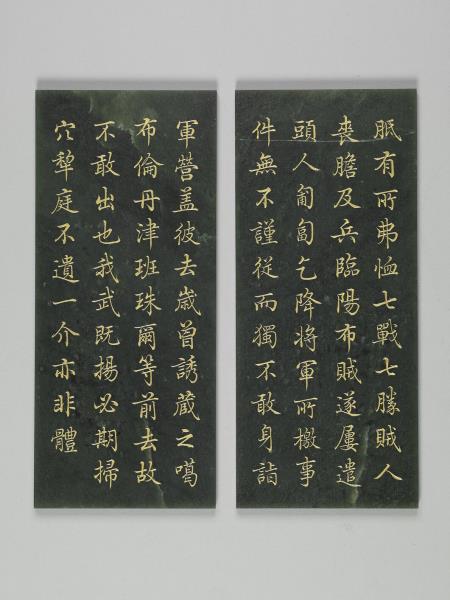 眂有所弗恤七戰七勝賊人
喪膽及兵臨陽布賊遂屢遣
頭人匍匐乞降將軍所檄事
件無不謹從而獨不敢身詣
軍營盖彼去嵗曾誘藏之噶
布倫丹津班珠爾等前去故
不敢出也我武既揚必期掃
穴犂庭不遺一介亦非體